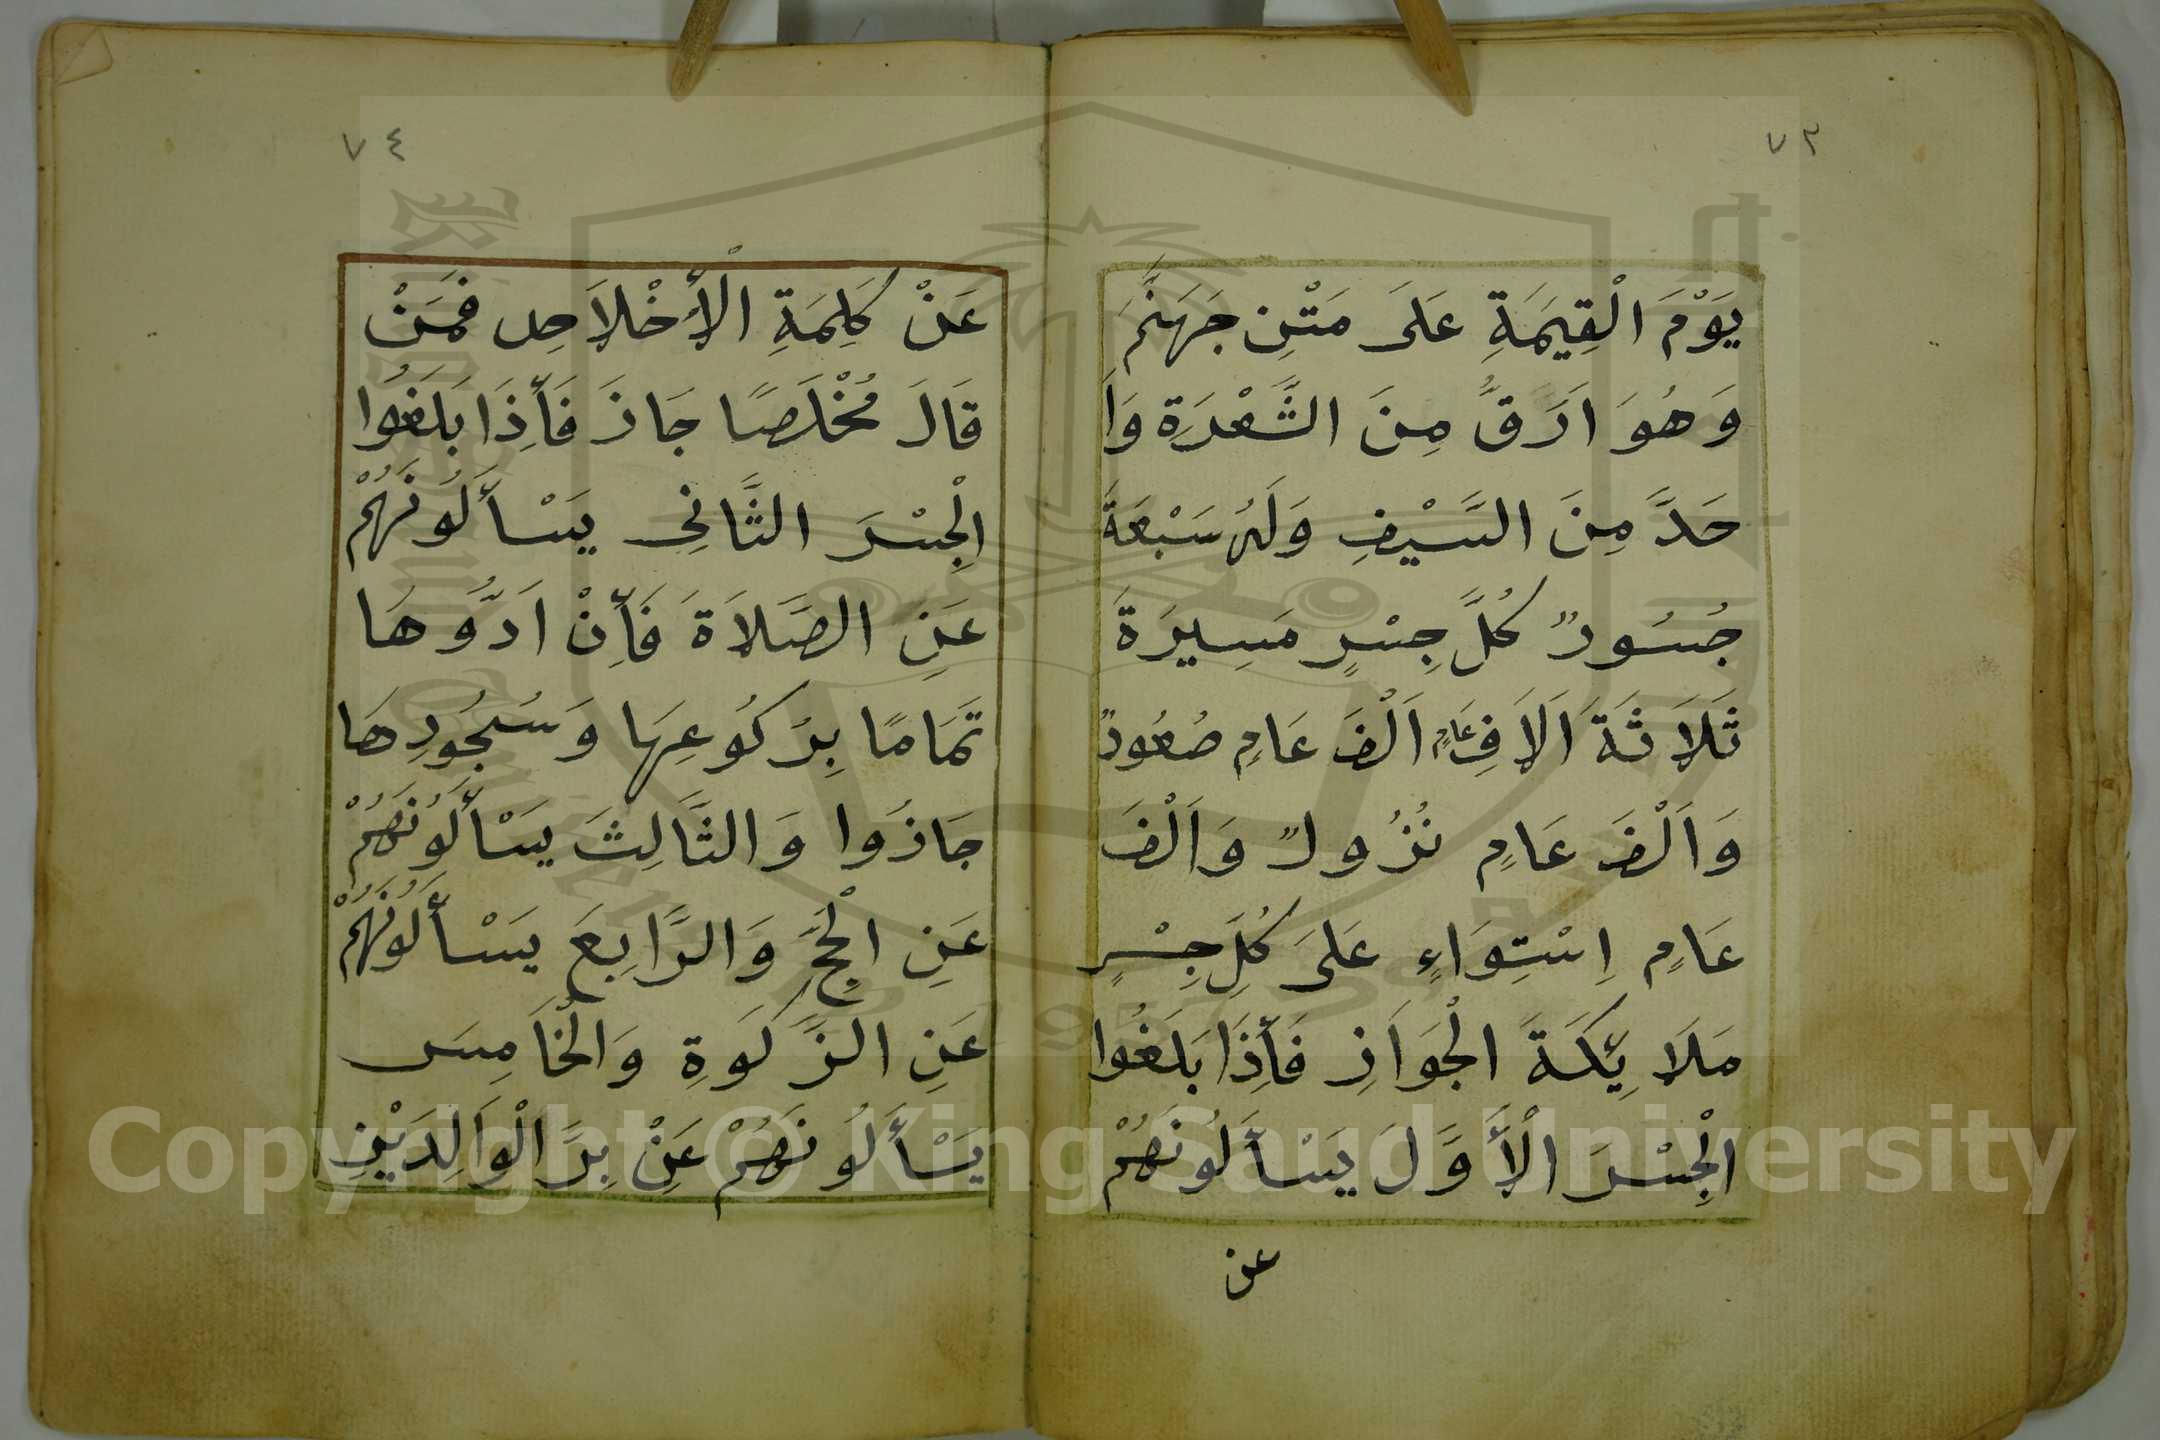 ٧٣
يَوْمَ الْقِيٰمَةِ عَلَى مَتْنِ جَهَنَّمَ
وَهُوَ اَرَقُّ مِنَ الشَّعْرَةِ وَاَ
حَدَّ مِنَ السَّيْفِ وَلَهُ سَبْعَةَ
جُسُورٌ كُلُّ جِسْرٍ مَسِيرَةَ
ثَلَاثَةَ اَلَافِ عَامٍ اَلْفَ عَامٍ صُعُودٌ
وَاَلْفَ عَامٍ نُزُولٌ وَاَلْفَ
عَامٍ اِسْتِوَاءٍ عَلَى كُلِّ جِسْرٍ
مَلَائِكَةَ الْجَوَازِ فَأِذَا بَلَغُوا
الْجِسْرَ الْأَوَّلَ يَسْأَلُونَهُمْ
عن
٧٤
عَنْ كَلِمَةِ الْأِخْلَاصِ فَمَنْ
قَالَ مُخْلَصًا جَازَ فَأِذَا بَلَغُوا
الْجِسْرَ الثَّانِي يَسْأَلُونَهُمْ
عَنِ الصَّلَاةَ فَأِنْ اَدَّوُهَا
تَمَامًا بِرُكُوعِهَا وَسُجُودِهَا
جَازُوا وَالثَّالِثَ يَسْأَلُونَهُمْ
عَنِ الْحَجِّ وَالرَّابِعَ يَسْأَلُونَهُمْ
عَنِ الزَّكَوةِ وَالْخَامِسَ
يَسْأَلُونَهُمْ عَنْ بِرِّ الْوَالِدَيْنِ
Copyright © King Saud University